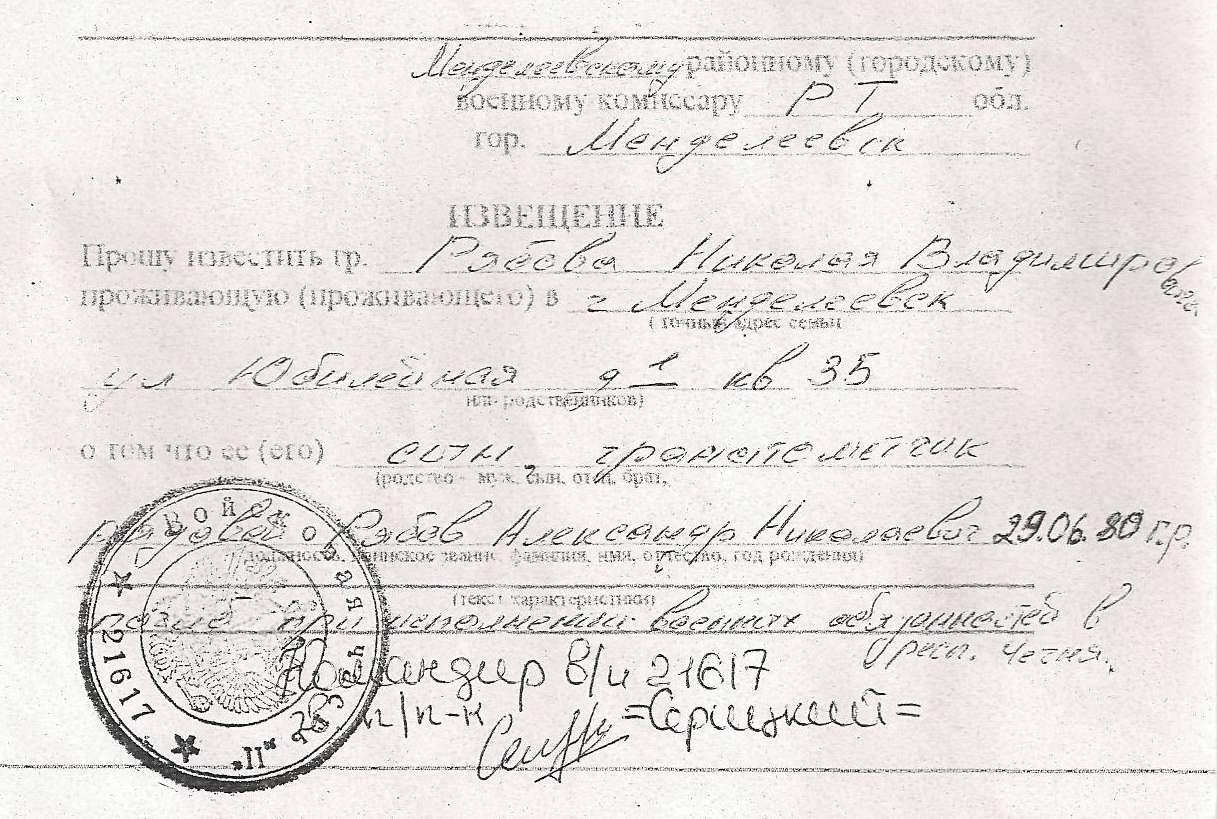 Менделеевскому районному (городскому)
военному комиссару РТ обл.
гор. Менделеевск
ИЗВЕЩЕНИЕ
Прошу известить гр. Рябова Николая Владимировича
проживающую (проживающего) в г Менделеевск
( точный адрес семьи
ул Юбилейная д 1 кв 35
или родственников)
о том что ее (его) сын, гранатометчик
(родство - муж, сын, отец, брат,
рядовой Рябов Александр Николаевич 29.06.80 г.р.
должность, воинское звание, фамилия, имя, отчество, год рождения)
(текст характеристики)
при исполнении военных обязанностей в
респ. Чечня.
Командир в/ч 21617
п/п-к =Серицкий=
Войсковая часть 21617 „П“